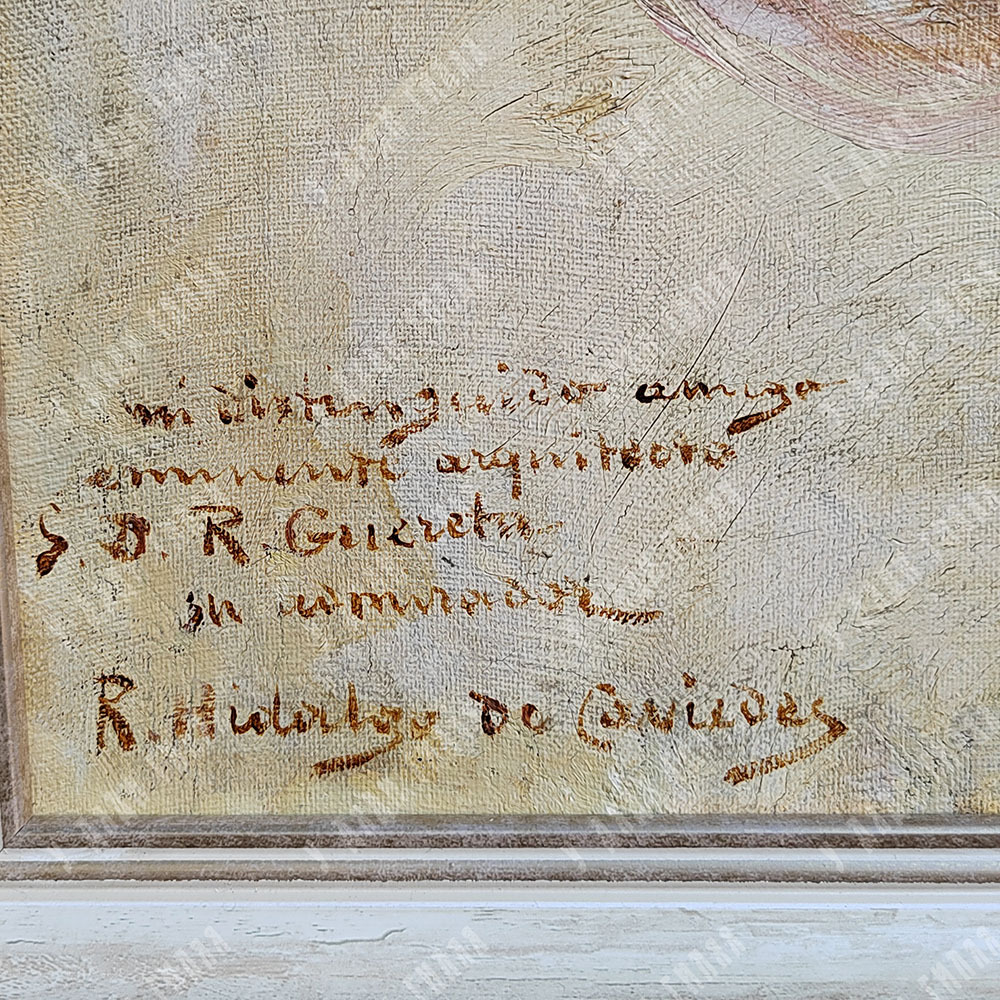 mi distinguido amigo
eminente arquitecto
S. D. R. Guereta
su admirador
R. Hidalgo de Caviedes